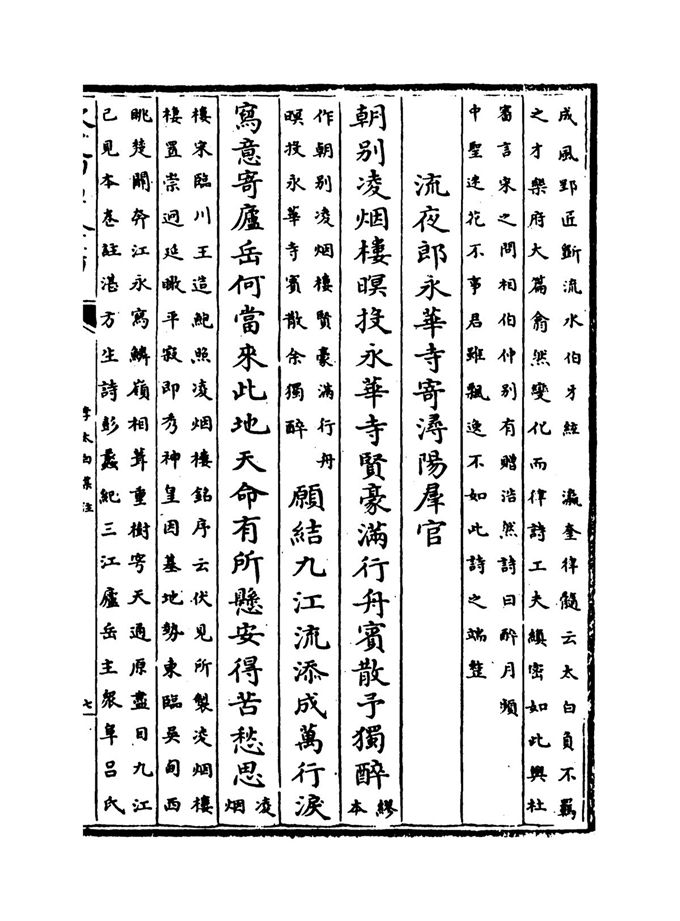 成風郢匠斲流水伯牙絃　瀛奎律髓云太白負不羈
之才樂府大篇翕然變化而律詩工夫縝密如此與杜
審言宋之問相伯仲别有贈浩然詩曰醉月頻
中聖迷花不事君雖飄逸不如此詩之端整
流夜郎永華寺寄潯陽羣官
朝别凌烟樓暝投永華寺賢豪滿行舟賓散予獨醉
繆本
作朝别凌烟樓賢豪滿行舟
暝投永華寺賓散余獨醉
願結九江流添成萬行淚
寫意寄廬岳何當來此地天命有所懸安得苦愁思
凌烟
樓宋臨川王造鮑照凌烟樓銘序云伏見所製凌烟樓
棲置崇迥延瞰平寂即秀神皇因基地勢東臨吳甸西
眺楚關奔江永寫鱗嶺相葺重樹窮天通原盡目九江
已見本卷註湛方生詩彭蠡紀三江廬岳主衆阜吕氏
李太白集注
七